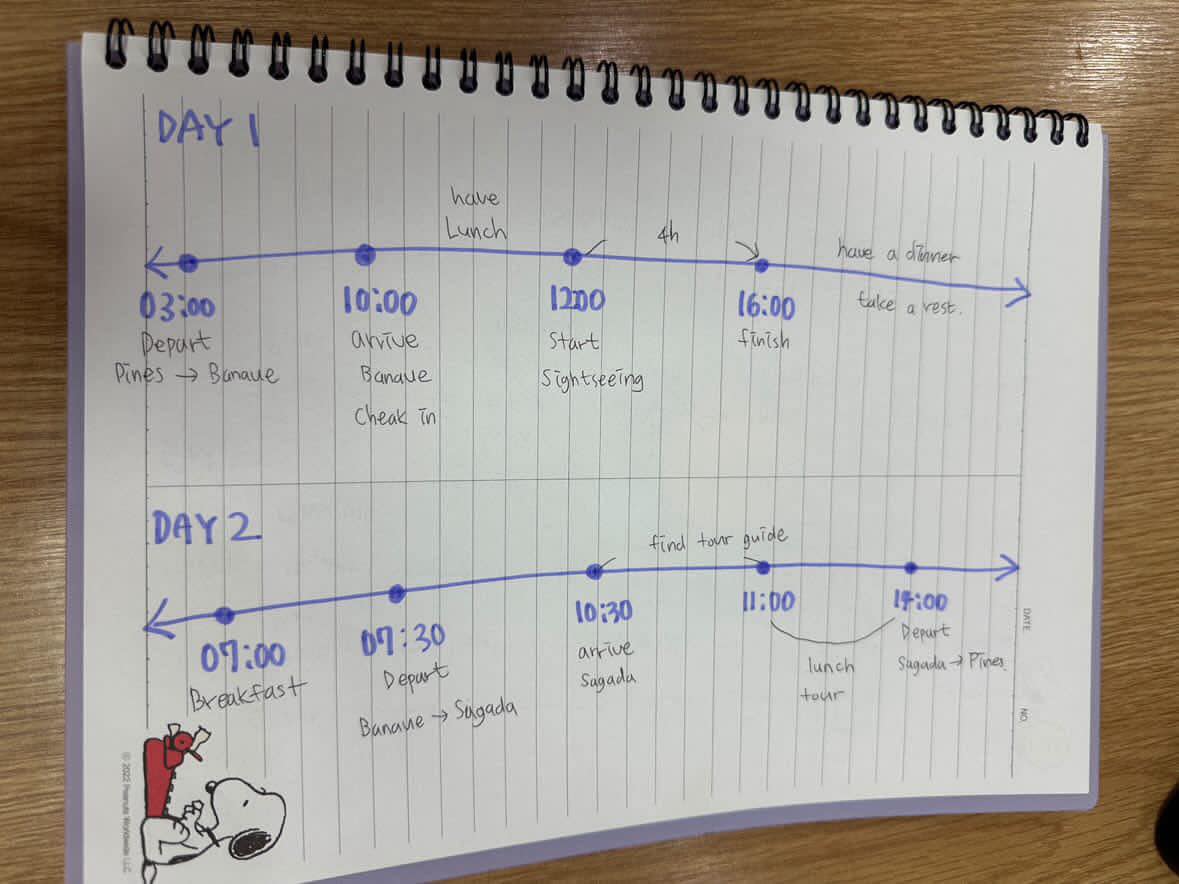 DAY 1
have
Lunch
4h
have a dinner
take a rest.
03:00
Depart
Pines → Banaue
10:00
arrive
Banaue
Cheak in
12:00
Start
Sightseeing
16:00
finish
DAY 2
find tour guide
07:00
Breakfast
07:30
Depart
Banaue → Sagada
10:30
arrive
Sagada
11:00
lunch
tour
14:00
Depart
Sagada → Pines.
DATE
NO.
© 2022 Peanuts Worldwide LLC